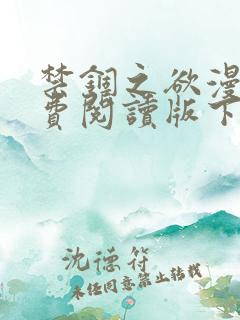 禁錮之欲漫
費閱讀版下
沈德符
未经同意禁止转载